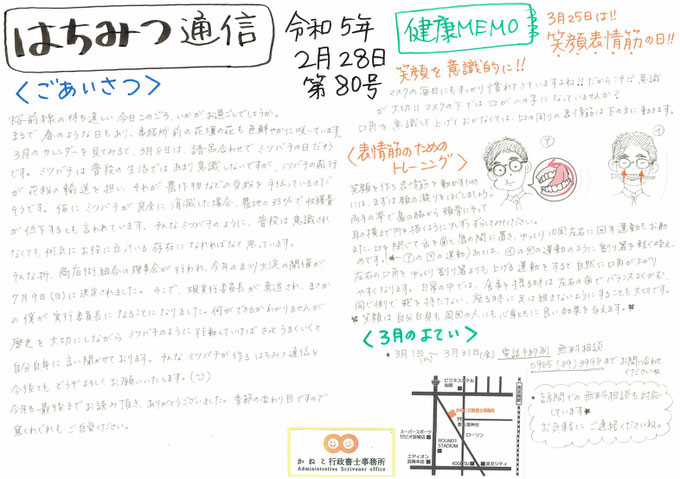 はちみつ通信
令和5年
2月28日
第80号
<ごあいさつ>
桜前線の待ち遠しい今日このごろ、いかがお過ごしでしょうか。
まるで春のような日もあり、事務所前の花壇の花も色鮮やかに咲いています。
3月のカレンダーを見てみると、3月8日は、語呂合わせでミツバチの日だそう
です。ミツバチは普段の生活ではあまり意識しないですが、ミツバチの飛行
が花粉の輸送を担い、それが農作物などの受粉を手伝っているのだ
そうです。仮にミツバチが完全に消滅した場合、農地の35%で収穫量
が低下するとも言われています。そんなミツバチのように、普段は意識され
なくても、何気にお役に立っている存在になれればなと思っています。
そんな折、商店街組合の理事会が行われ、今年のまつり大淀の開催が
7月9日(日)に決定されました。そこで、現実行委員長が勇退され、まさか
の僕が実行委員長になることになりました。何ができるかわかりませんが
歴史を大切にしながらミツバチのように行動していけばきっとうまくいくと
自分自身に言い聞かせております。そんなミツバチが作るはちみつ通信を
今後ともどうぞよろしくお願いいたします。
今月も最後までお読み頂き、ありがとうございました。季節の変わり目ですので
くれぐれもご自愛ください。
健康MEMO
3月25日は!!
笑顔表情筋の日!!
笑顔を意識的に!!
マスクの毎日にもすっかり慣れてきていますよね!!だからこそご意識
が大切!!マスクの下では口がへの字になっていませんか?
口角を意識して上げておかなくては、口の周りの表情筋は下の方に動きます。
<表情筋のための
トレーニング>
笑顔を作る表情筋を動かすため
には、まずは顔の凝りをほぐしましょう。
両手の掌で鼻の脇から頬骨にそって
耳の横まで円を描くようにしてずらすようにみてください。
また、口を閉じて舌を歯と唇の間に置き、ゆっくり10回左右に回す運動もお勧
めです。
左右の口角をゆっくり割り箸よりも上げる運動をすると自然に口角が上がり
やすくなります。日常の中では、食事を摂る時は左右の歯でバランスよくかむ、
同じ側で鞄を持たない、座る時に足は組まないようにすることも大切です。
笑顔は自分自身も周囲の人にも、心身ともに良い効果を与えます。
<3月のよてい>
・3月1日~3月31日(金) 電話予約制 無料相談
0985(29)3998までお問い合わせ
ください
・訪問での無料相談も対応
しています
お気軽にご連絡くださいね。
ビジネスホテル
かねこ行政書士事務所
ローソン
スーパースポーツ
ゼビオ宮崎店
ROUND1
STADIUM
エディオン
宮崎本店
宮交シティ
かねこ行政書士事務所
Administrative Scrivener office